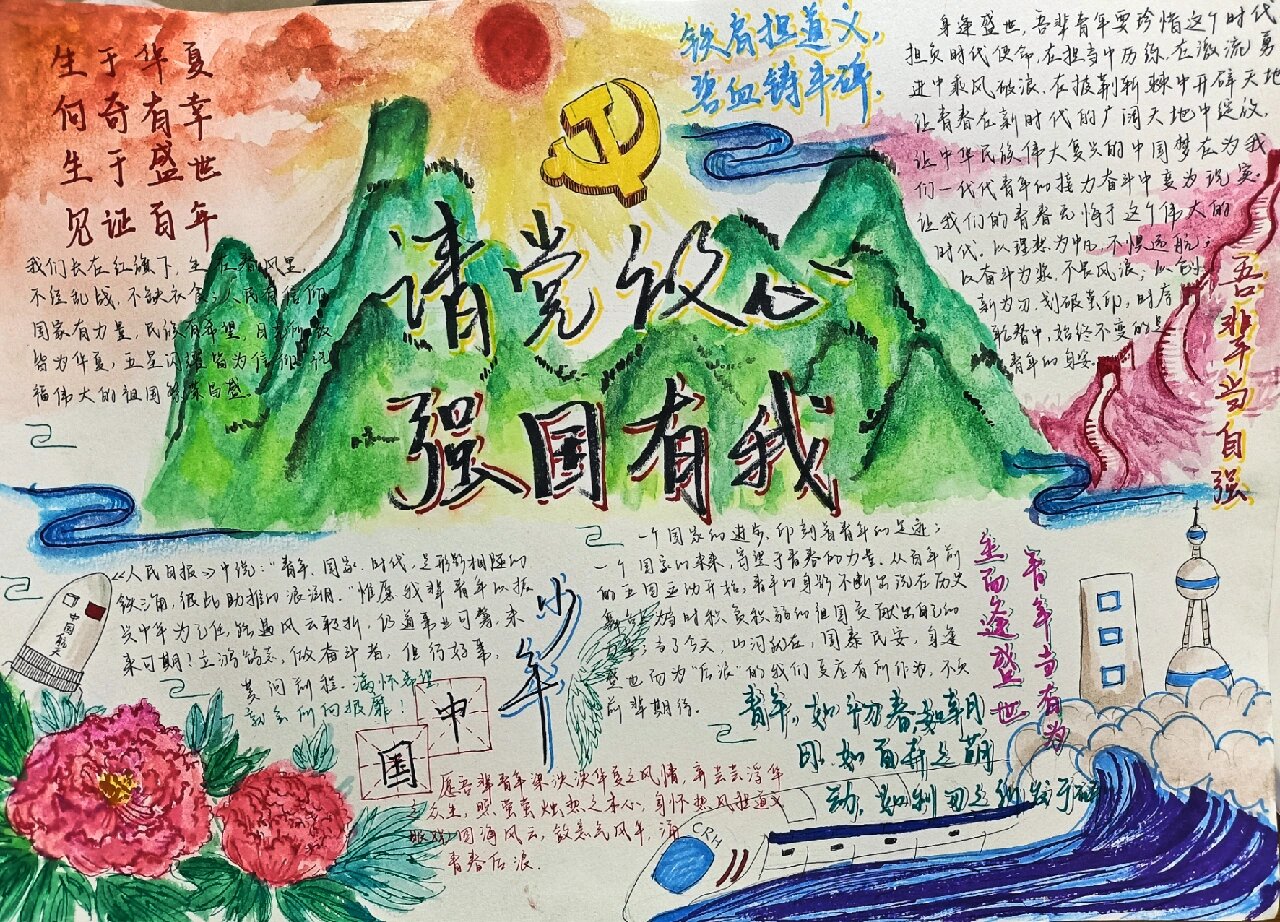 生于华夏
何奇有幸
生于盛世
见证百年
我们长在红旗下，生在春风里
不经乱战，不缺衣食，人民有信仰
国家有力量，民族有希望，目
皆为华夏，五星闪耀皆为信仰，祝
福伟大的祖国繁荣昌盛
铁肩担道义，
碧血铸丰碑.
身逢盛世，吾辈青年要珍惜这个时代
担负时代使命，在担当中历练，在激流勇
进中乘风破浪，在披荆斩棘中开辟天地
让青春在新时代的广阔天地中绽放，
让中华民族伟大复兴的中国梦在为我
们一代代青年的接力奋斗中变为现实
让我们的青春无悔于这个伟大的
时代，以理想为帆，不惧远航；
以奋斗为桨，不畏风浪；以创
新为刀，划破
中，始终不变的是
青年的
请党放心
强国有我
吾辈当自强
《人民日报》中说：“青年、国家、时代，是形影相随的
铁三角，彼此助推的浪
兴中华为己任，纵遇风云
来可期！立鸿鹄志，做奋斗者，但行好事，
莫问前程. 满怀希望
就会所向披靡！
一个国家的进步，印刻着青年的足迹；
一个国家的未来，寄望于青春的力量，从百年前
的五四运动开始，青年的身影不断出现在历史
为当时积贫积弱的祖国贡献出自己的
了今天，山河
国泰民安，身逢
盛世而为“后浪”的我们更应有所作为，不负
前辈期待.
生而逢盛世
青年当有为
中国航天
少年
中
国
青年，如初春，如朝
日，如百卉之萌
动，如利刃之
愿吾辈青年
泱泱华夏之风情，
浮华
众生，照萤萤烛
之本心，身怀热风担道义
四海风云，
青春后浪.
CRH